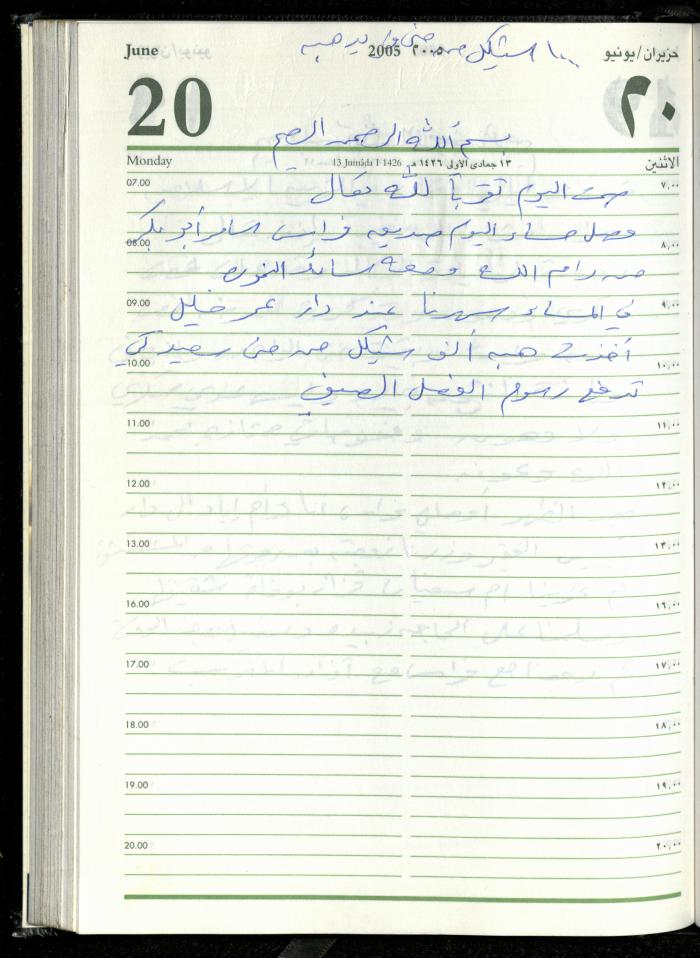 June 2005 ٢٠٠٥ حزيران/يونيو
١٠٠٠ شيكل من منى هبه
20 ٢٠
بسم الله الرحمن الرحيم
Monday 13 Jumâda I 1426 ١٣ جمادى الأولى ١٤٢٦ هـ الاثنين
07.00 ٧,٠٠
صمت اليوم تقرباً لله تعالى
وصل مساء اليوم صديق فراس سامر أبو بكر
08.00 ٨,٠٠
من رام الله ومعه سائد
09.00 ٩,٠٠
في المساء سهرنا عند دار عمر خليل
أخذت هبه ألف شيكل من منى سعيد كي
10.00 ١٠,٠٠
تدفع رسوم الفصل الصيفي
11.00 ١١,٠٠
12.00 ١٢,٠٠
13.00 ١٣,٠٠
16.00 ١٦,٠٠
17.00 ١٧,٠٠
18.00 ١٨,٠٠
19.00 ١٩,٠٠
20.00 ٢٠,٠٠